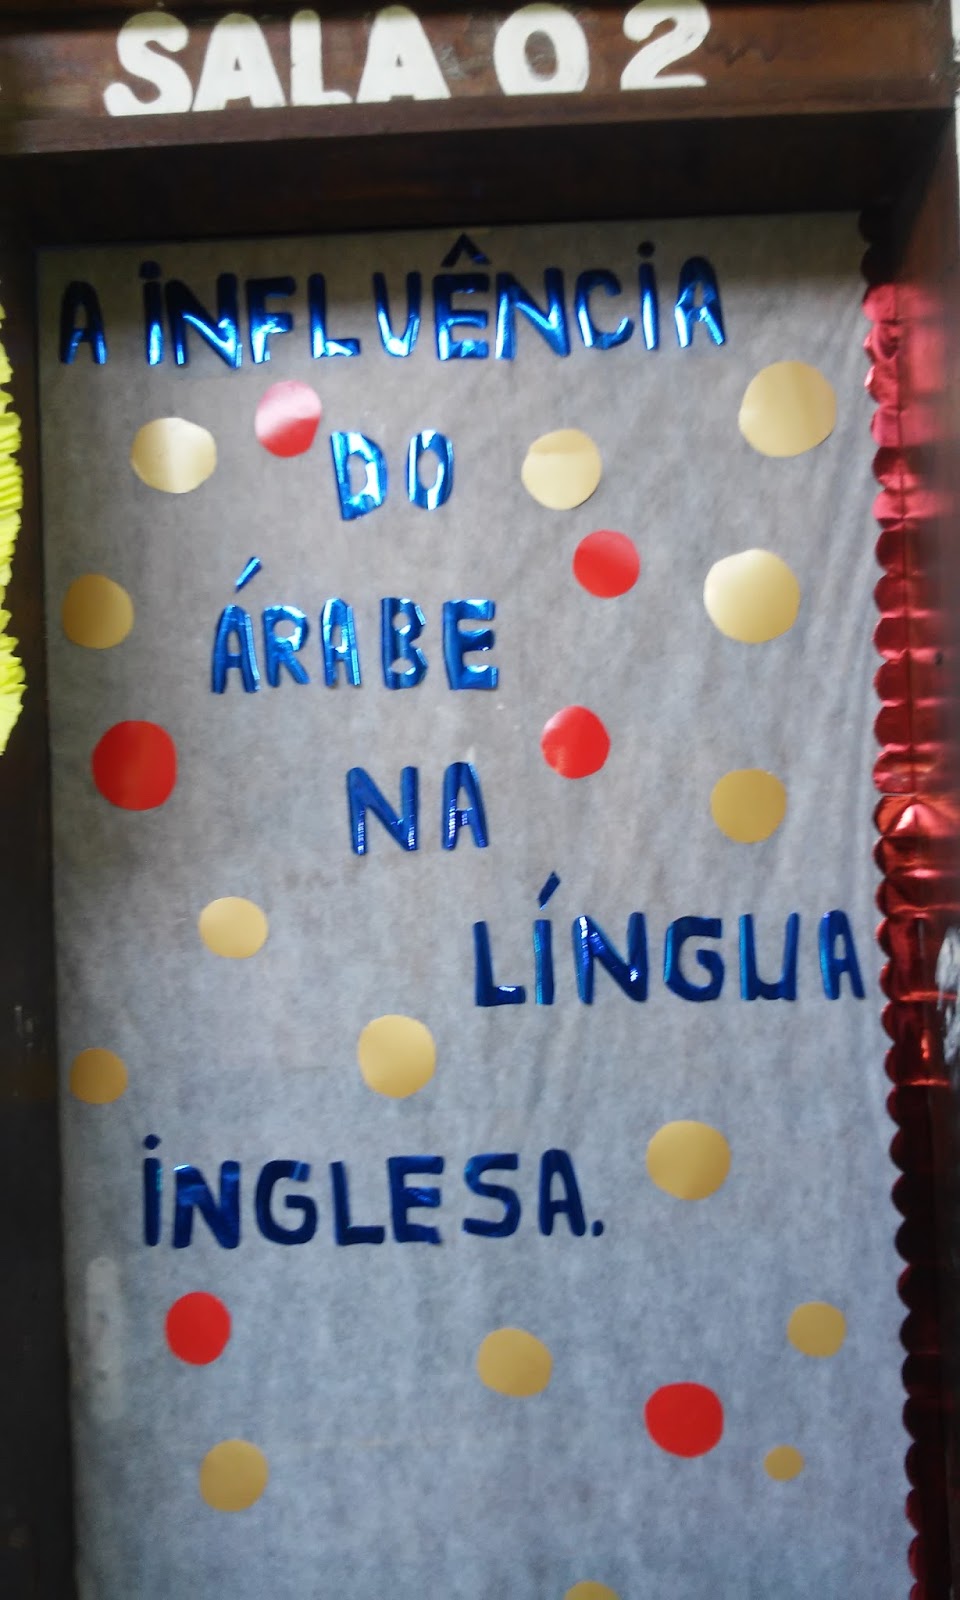 SALA 02
A INFLUÊNCIA
DO
ÁRABE
NA
LÍNGUA
INGLESA.